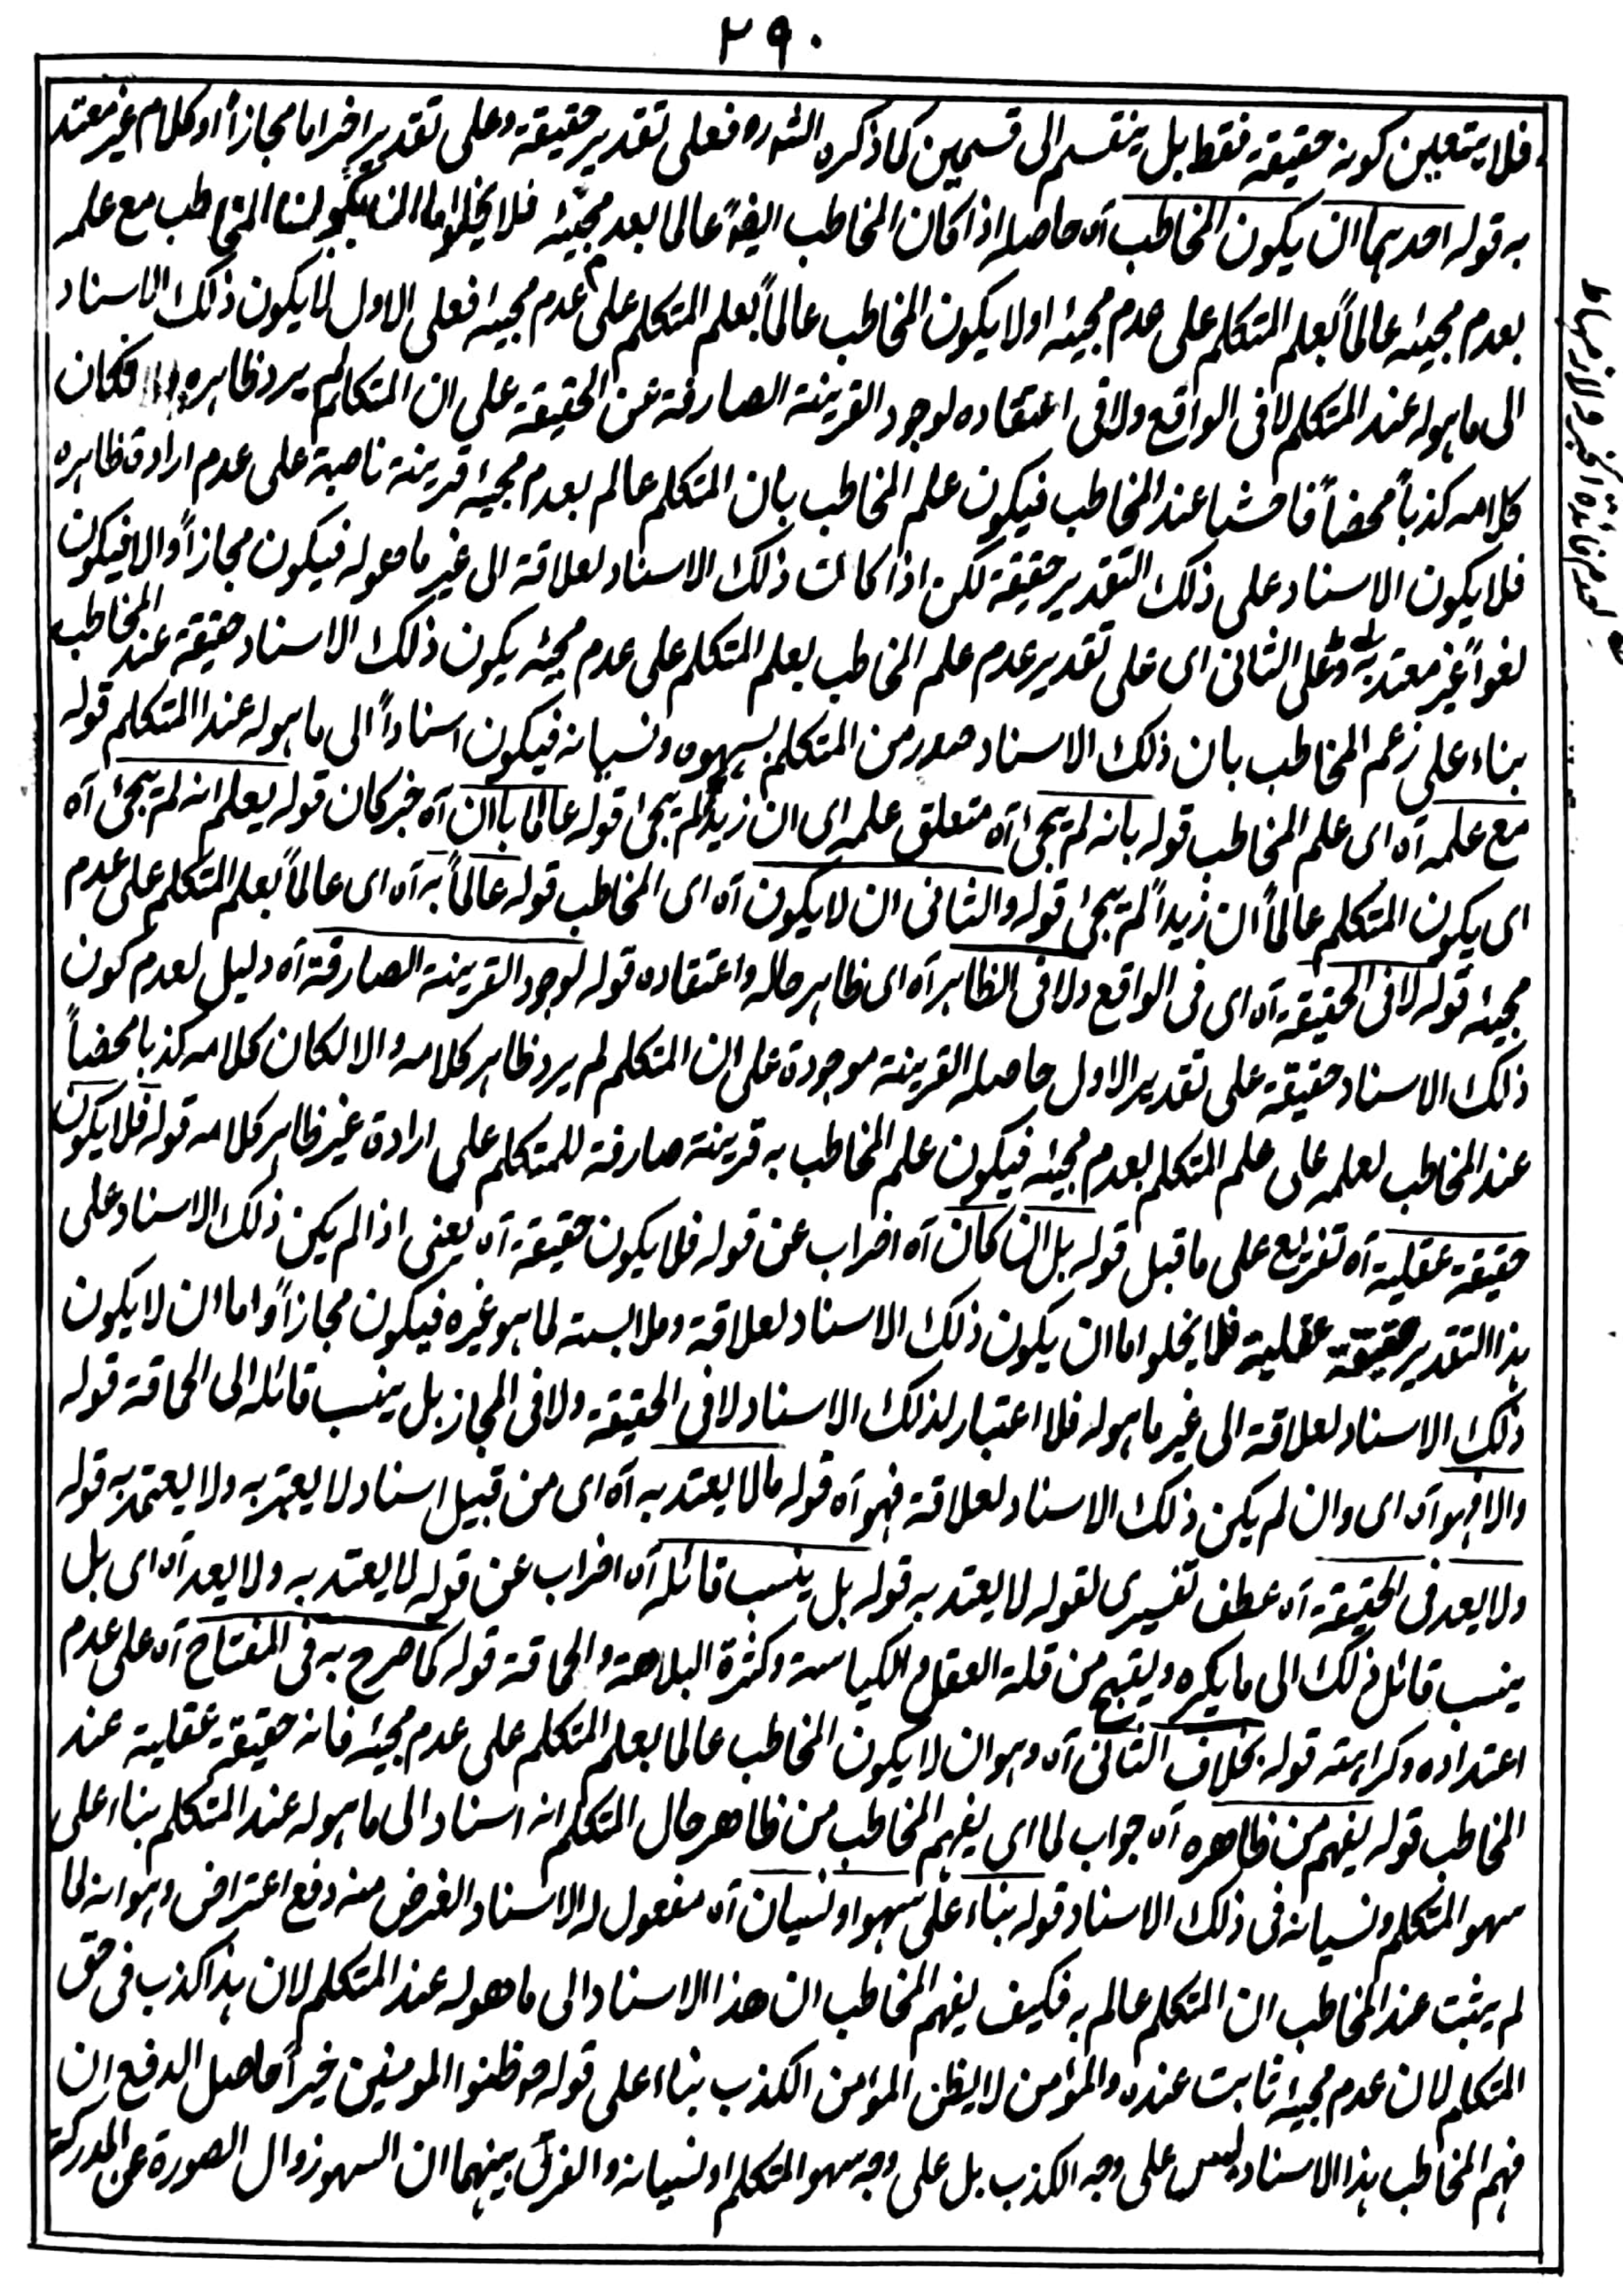 ٢٩٠
فلا يتعين كونه حقيقة فقط بل ينقسم الى قسمين كما ذكره الشه ره فعلى تقدير حقيقة وعلى تقدير اخر اما مجازاً او كلام غير معتد
به قوله احدهما ان يكون المخاطب آه حاصله اذا كان المخاطب ايضاً عالما بعدم مجيئه فلا يخلوا اما ان يكون المخاطب مع علمه
بعدم مجيئه عالماً بعلم المتكلم على عدم مجيئه اولا يكون المخاطب عالماً بعلم المتكلم على عدم مجيئه فعلى الاول لا يكون ذلك الاسناد
الى ما هو له عند المتكلم لا فى الواقع ولا فى اعتقاده لوجود القرينة الصارفة عن الحقيقة على ان المتكلم لم يرد ظاهره والا فكان
كلامه كذباً محضاً فاحشا عند المخاطب فيكون علم المخاطب بان المتكلم عالم بعدم مجيئه قرينة ناصبة على عدم ارادة ظاهره
فلا يكون الاسناد على ذلك التقدير حقيقة لكن اذا كانت ذلك الاسناد لعلاقة الى غير ما هو له فيكون مجازاً والا فيكون
لغواً غير معتد به وعلى الثانى اى على تقدير عدم علم المخاطب بعلم المتكلم على عدم مجيئه يكون ذلك الاسناد حقيقة عند المخاطب
بناء على زعم المخاطب بان ذلك الاسناد صدر من المتكلم بسهوه ونسيانه فيكون اسناداً الى ما هو له عند المتكلم قوله
مع علمه آه اى علم المخاطب قوله بانه لم يجئ آه متعلق علمه اى ان زيداً لم يجئ قوله عالما بان آه خبر كان قوله يعلم انه لم يجئ آه
اى يكون المتكلم عالماً ان زيداً لم يجئ قوله والثانى ان لا يكون آه اى المخاطب قوله عالماً به آه اى عالماً بعلم المتكلم على عدم
مجيئه قوله لا فى الحقيقة آه اى فى الواقع ولا فى الظاهر آه اى ظاهر حاله واعتقاده قوله لوجود القرينة الصارفة آه دليل لعدم كون
ذلك الاسناد حقيقة على تقدير الاول حاصله القرينة موجودة على ان المتكلم لم يرد ظاهر كلامه والا لكان كلامه كذبا محضاً
عند المخاطب لعلمه على علم المتكلم بعدم مجيئه فيكون علم المخاطب به قرينة صارفة للمتكلم على ارادة غير ظاهر كلامه قوله فلا يكون
حقيقة عقلية آه تفريع على ما قبل قوله بل ان كان آه اضراب عن قوله فلا يكون حقيقة آه يعنى اذا لم يكن ذلك الاسناد على
هذا التقدير حقيقة عقلية فلا يخلوا اما ان يكون ذلك الاسناد لعلاقة وملابسته لما هو غيره فيكون مجازاً واما ان لا يكون
ذلك الاسناد لعلاقة الى غير ما هو له فلا اعتبار لذلك الاسناد لا فى الحقيقة ولا فى المجاز بل ينسب قائله الى الحماقة قوله
والا فهو آه اى وان لم يكن ذلك الاسناد لعلاقة فهو آه قوله مالا يعتد به آه اى من قبيل اسناد لا يعتبر به ولا يعتمد به قوله
ولا يعد فى الحقيقة آه عطف تفسيرى لقوله لا يعتد به قوله بل ينسب قائله آه اضراب عن قوله لا يعتد به ولا يعد آه اى بل
ينسب قائل ذلك الى ما يكره ويقبح من قلة العقل والكياسة وكثرة البلاهة والحماقة قوله كما صرح به فى المفتاح آه على عدم
اعتداده وكراهته قوله بخلاف الثانى آه وهو ان لا يكون المخاطب عالما بعلم المتكلم على عدم مجيئه فانه حقيقة عقلية عند
المخاطب قوله يفهم من ظاهره آه جواب لما اى يفهم المخاطب من ظاهر حال المتكلم انه اسناد الى ما هو له عند المتكلم بناء على
سهو المتكلم ونسيانه فى ذلك الاسناد قوله بناء على سهو او نسيان آه مفعول له الاسناد الغرض منه دفع اعتراض وهو انه لما
لم يثبت عند المخاطب ان المتكلم عالم به فكيف يفهم المخاطب ان هذا الاسناد الى ما هو له عند المتكلم لان هذا كذب فى حق
المتكلم لان عدم مجيئه ثابت عنده والمؤمن لا يظن المؤمن الكذب بناء على قوله ﷺ ظنوا المومنين خيراً حاصل الدفع ان
فهم المخاطب هذا الاسناد ليس على وجه الكذب بل على وجه سهو المتكلم او نسيانه والفرق بينهما ان السهو زوال الصورة عن المدركة